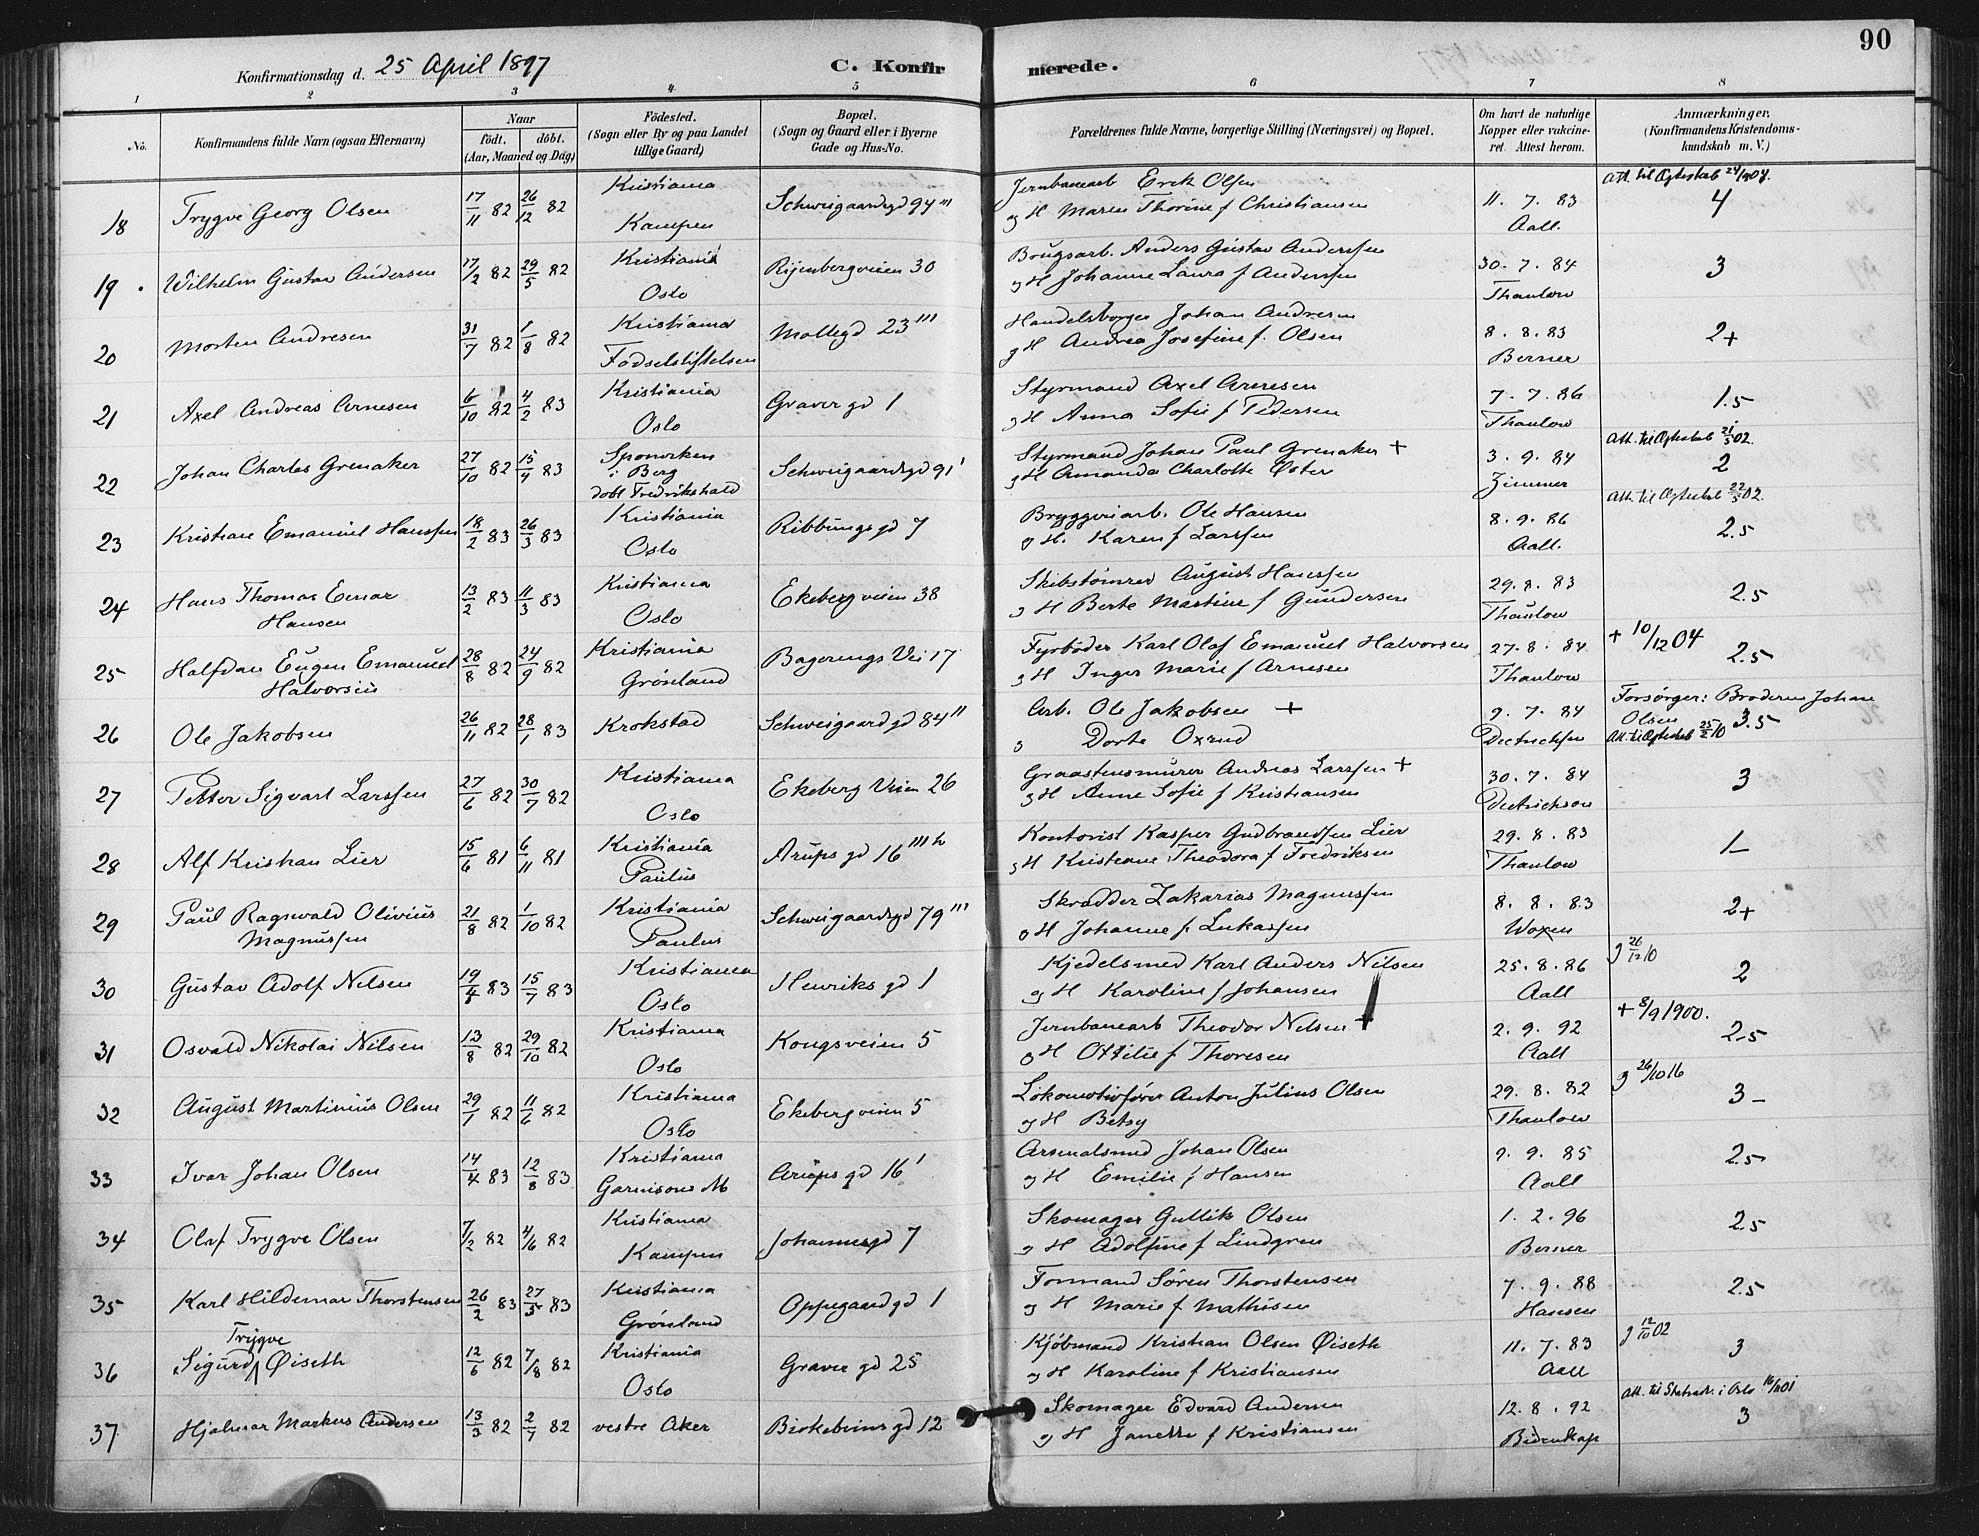 90
Konfirmationsdag d. 25 April 1897
C. Konfirmerede.
1 2 3 4 5 6 7 8
No. Konfirmandens fulde Navn (ogsaa Efternavn) Naar født. døbt. (Aar, Maaned og Dag) Fødested. (Sogn eller By og paa Landet tillige Gaard) Bopæl. (Sogn og Gaard eller i Byerne Gade og Hus-No. Forældrenes fulde Navne, borgerlige Stilling (Næringsvei) og Bopæl. Om havt de naturlige Kopper eller vakcineret. Attest herom. Anmærkninger. (Konfirmandens Kristendomskundskab m. V.)
18 Trygve Georg Olsen 17/11 82 26/12 82 Kristiania Kampen Schweigaardsgd 94 III Jernbanearb Erik Olsen
og H Maren Thorine f Christiansen 11. 7. 83 Aall. Att. til Ægteskab 24/1 904. 4
19 Wilhelm Gustav Andersen 17/2 82 29/5 82 Kristiania Oslo Ryenbergveien 30 Brugsarb. Anders Gustav Anderssen
og H Johanne Laura f Anderssen 30. 7. 84 Thaulow 3
20 Morten Andresen 31/7 82 1/8 82 Kristiania Fødselstiftelsen Møllegd 23 III Handelsborger Johan Andresen
og H Andrea Josefine f. Olsen 8. 8. 83 Berner 2+
21 Axel Andreas Arnesen 6/10 82 4/2 83 Kristiania Oslo Graver gd 1 Styrmand Axel Arnesen
og H Anna Sofie f Pedersen 7. 7. 86 Thaulow 1.5
22 Johan Charles Grenaker 27/10 82 15/4 83 Sponviken i Berg døbt Fredrikshald Schweigaardsgd 91 I Styrmand Johan Paul Grenaker +
og H Amanda Charlotte Øster 3. 9. 84 Zimmer Att. til Ægteskab 21/5 02. 2
23 Kristian Emanuel Hanssen 18/2 83 26/3 83 Kristiania Oslo Ribbungs gd 7 Bryggeriarb. Ole Hansen
og H. Karen f Larssen 8. 9. 86 Aall. Att. til Ægteskab 22/5 02. 2.5
24 Hans Thomas Einar Hansen 13/2 83 11/3 83 Kristiania Oslo Ekebergveien 38 Skibstømrer August Hanssen
og H Berte Martine f Gundersen 29. 8. 83 Thaulow 2.5
25 Halfdan Eugen Emanuel Halvorsen 28/8 82 24/9 82 Kristiania Grønland Bagerengs Vei 17 Fyrbøder Karl Olaf Emanuel Halvorsen
og H Inger Marie f Arnesen 27. 8. 84 Thaulow + 10/12 04 2.5
26 Ole Jakobsen 26/11 82 28/1 83 Krokstad Schweigaard gd 84 II Arb. Ole Jakobsen +
og Dorte Oxrud 9. 7. 84 Dietrichsen Forsørger: Broderen Johan Olsen
Att. til Ægteskab 25/2 10 3.5
27 Petter Sigvart Larssen 27/6 82 30/7 82 Kristiania Oslo Ekeberg Veien 26 Graastensmurer Andreas Larssen +
og H Anne Sofie f Kristiansen 30. 7. 84 Dietrichson 3
28 Alf Kristian Lier 15/6 81 6/11 81 Kristiania Paulus Arups gd 16 III h Kontorist Kasper Gudbrandsen Lier
og H Kristiane Theodora f Fredriksen 29. 8. 83 Thaulow 1-
29 Paul Ragnvald Olivius Magnussen 21/8 82 1/10 82 Kristiania Paulus Schweigaardsgd 79 III Skrædder Zakarias Magnussen
og H Johanne f Lukassen 8. 8. 83 Woxen 2+
30 Gustav Adolf Nilsen 19/4 83 15/7 83 Kristiania Oslo Henriks gd 1 Kjedelsmed Karl Anders Nilsen
og H Karoline f Johansen 25. 8. 86 Aall g 26/12 10 2
31 Osvald Nikolai Nilsen 13/8 82 29/10 82 Kristiania Oslo Kongsveien 5 Jernbanearb Theodor Nilsen +
og H Ottilie f Thoresen 2. 9. 92 Aall + 8/9 1900. 2.5
32 August Martinius Olsen 29/1 82 11/6 82 Kristiania Oslo Ekebergveien 5 Lokomotivfører Anton Julius Olsen
og H Betsy 29. 8. 82 Thaulow g 26/10 16 3-
33 Ivar Johan Olsen 14/4 83 12/8 83 Kristiania Garnisons M Arups gd 16 I Arsenalsmed Johan Olsen
og H Emilie f Hansen 9. 9. 85 Aall 2.5
34 Olaf Trygve Olsen 7/2 82 4/6 82 Kristiania Kampen Johannesgd 7 Skomager Gullik Olsen
og H Adolfine f Lindgren 1. 2. 96 Berner 2.5
35 Karl Hildemar Thorstensen 26/2 83 27/5 83 Kristiania Grønland Oppegaard gd 1 Formand Søren Thorstensen
og H Marie f Mathisen 7. 9. 88 Hansen 2.5
36 Sigurd Trygve Øiseth 12/6 82 7/8 82 Kristiania Oslo Graver gd 25 Kjøbmand Kristian Olsen Øiseth
og H Karoline f Kristiansen 11. 7. 83 Aall g 12/10 02 3
37 Hjalmar Markus Andersen 13/3 82 2/7 82 vestre Aker Birkebeiner gd 12 Skomager Edvard Andersen
og H Janette f Kristiansen 12. 8. 92 Bidenkap Att. til i Oslo 16/1 01 3